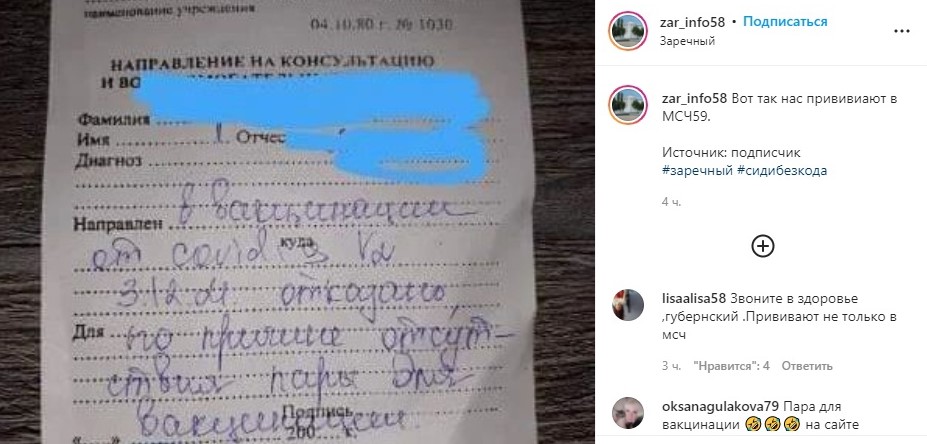 наименование учреждения
04.10.80 г. № 1030
НАПРАВЛЕНИЕ НА КОНСУЛЬТАЦИЮ
И ВО
Фамилия
Имя Отчес
Диагноз
в вакцинации
Направлен
куда
от covid V2
3.12.21 отказано,
Для по причине отсут-
ствия пары для
вакцинации
Подпись
"....." 200.... г.
zar_info58 • Подписаться
Заречный
zar_info58 Вот так нас прививиают в
МСЧ59.
Источник: подписчик
#заречный #сидибезкода
4 ч.
lisaalisa58 Звоните в здоровье
,губернский .Прививают не только в
мсч
3 ч. "Нравится": 4 Ответить
oksanagulakova79 Пара для
вакцинации 🤣🤣🤣 на сайте